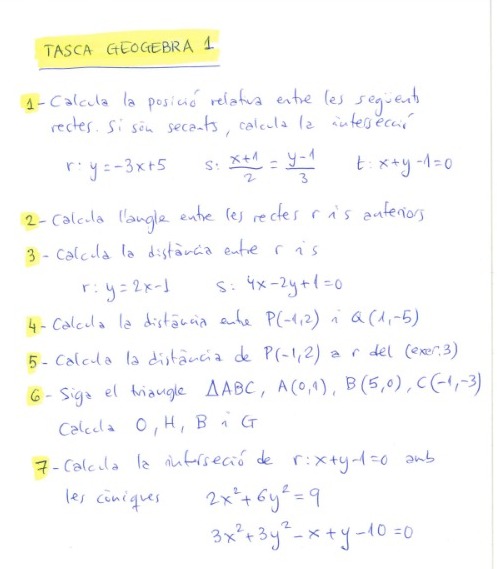 TASCA GEOGEBRA 1
1- Calcula la posició relativa entre les següents
rectes. Si són secants, calcula la intersecció
r: y=-3x+5 s: (x+1)/2 = (y-1)/3 t: x+y-1=0
2- Calcula l'angle entre les rectes r i s anteriors
3- Calcula la distància entre r i s
r: y=2x-1 s: 4x-2y+1=0
4- Calcula la distància entre P(-1,2) i Q(1,-5)
5- Calcula la distància de P(-1,2) a r del (exer.3)
6- Siga el triangle △ABC, A(0,1), B(5,0), C(-1,-3)
Calcula O, H, B i G
7- Calcula la interseció de r: x+y-1=0 amb
les còniques 2x²+6y²=9
3x²+3y²-x+y-10=0